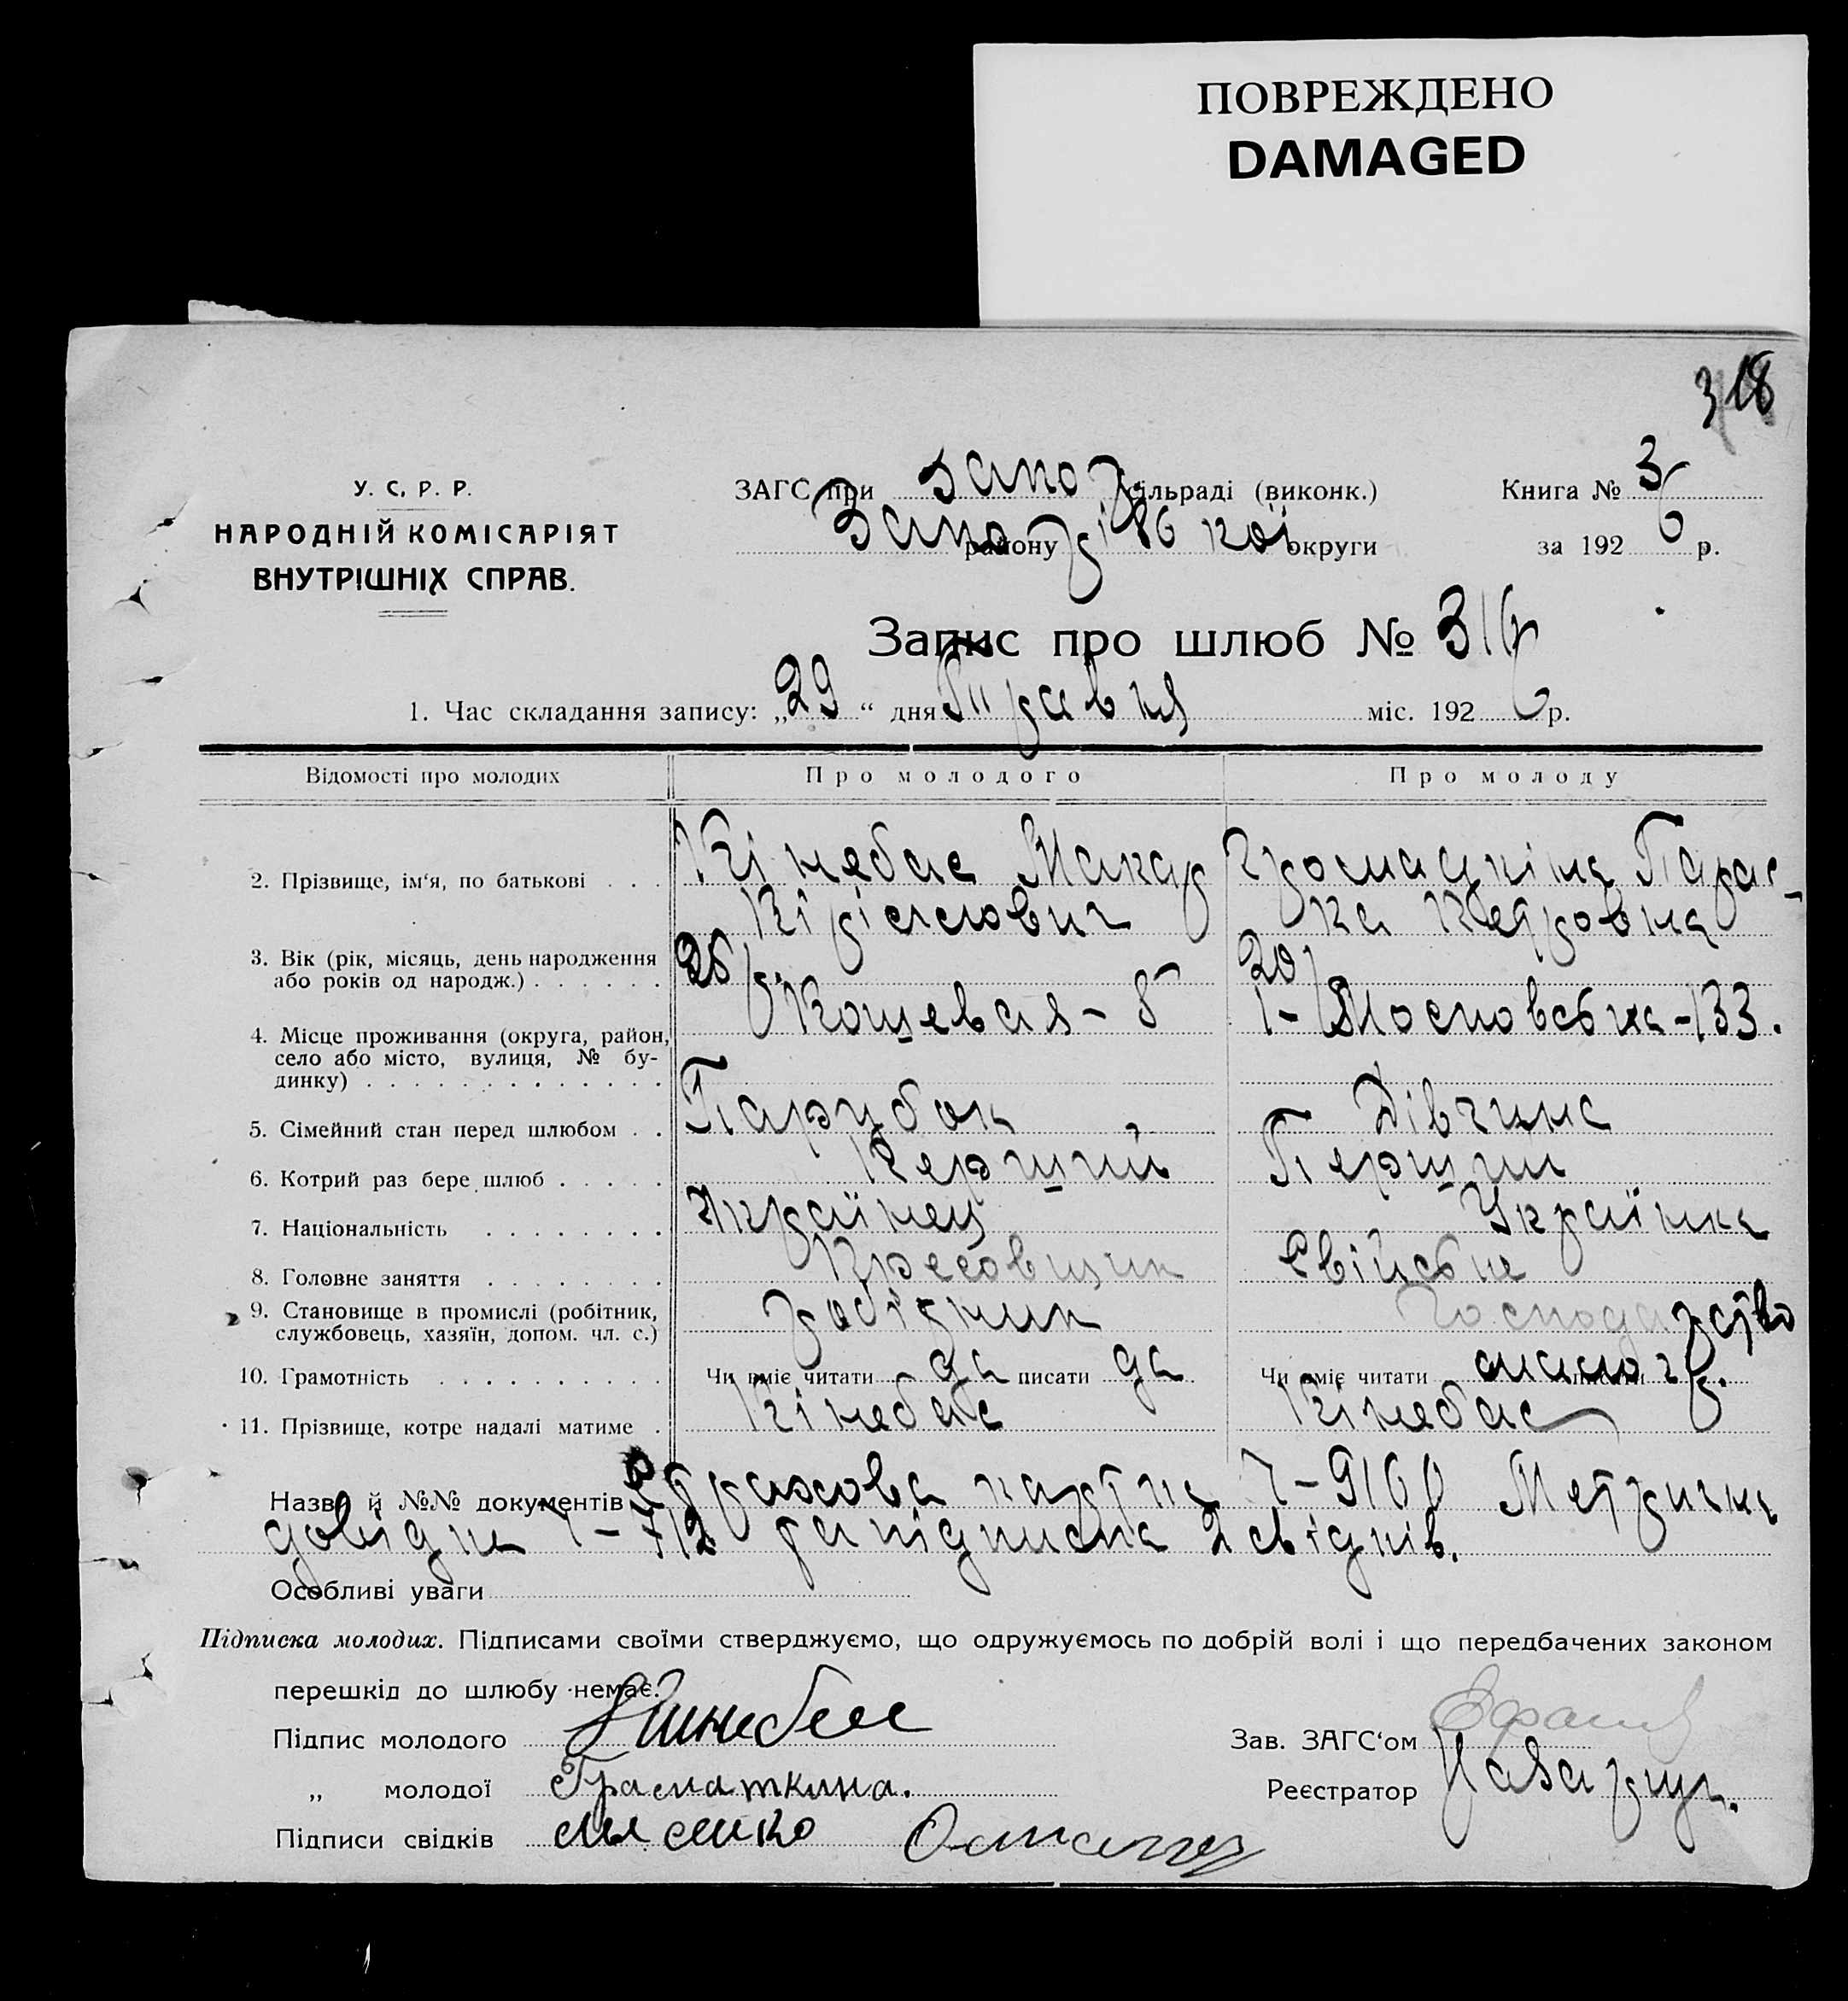 ПОВРЕЖДЕНО
DAMAGED
318
У. С. Р. Р.
НАРОДНІЙ КОМІСАРІЯТ
ВНУТРІШНІХ СПРАВ.
ЗАГС при Запор сільраді (виконк.)
району Запорізької округи
Книга № 3
за 1926 р.
Запис про шлюб № 316
1. Час складання запису: „29“ дня Травня міс. 1926 р.
Відомості про молодих Про молодого Про молоду
2. Прізвище, ім‘я, по батькові . . . Кінебас Макар Громадкіна Парас-
Кірілович ка
3. Вік (рік, місяць, день народження 20
або років од народж.) . . . . . .
4. Місце проживання (округа, район, Кошевая – 5 133.
село або місто, вулиця, № бу-
динку) . . . . . . . . . . . . .
5. Сімейний стан перед шлюбом . . Парубок Дівчина
6. Котрий раз бере шлюб . . . . . Перший Перший
7. Національність . . . . . . . . Українец Українка
8. Головне заняття . . . . . . . . Свійське
9. Становище в промислі (робітник, робідник господарство
службовець, хазяїн, допом. чл. с.)
10. Грамотність . . . . . . . . . . Чи вміє читати да писати да Чи вміє читати малогр. писати
11. Прізвище, котре надалі матиме . Кінебас Кінебас
Назви й №№ документів Страхова картка 9160 Метрична
довідка 712 та підписка 2 свідків.
Особливі уваги
Підписка молодих. Підписами своїми стверджуємо, що одружуємось по добрій волі і що передбачених законом
перешкід до шлюбу немає.
Підпис молодого Кинебас
Зав. ЗАГС‘ом
„ молодої Граматкина.
Реєстратор
Підписи свідків